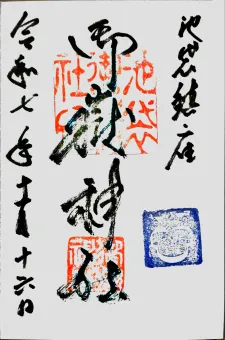 池袋鎮座
御嶽神社
令和七年十一月十六日
池袋御嶽神社